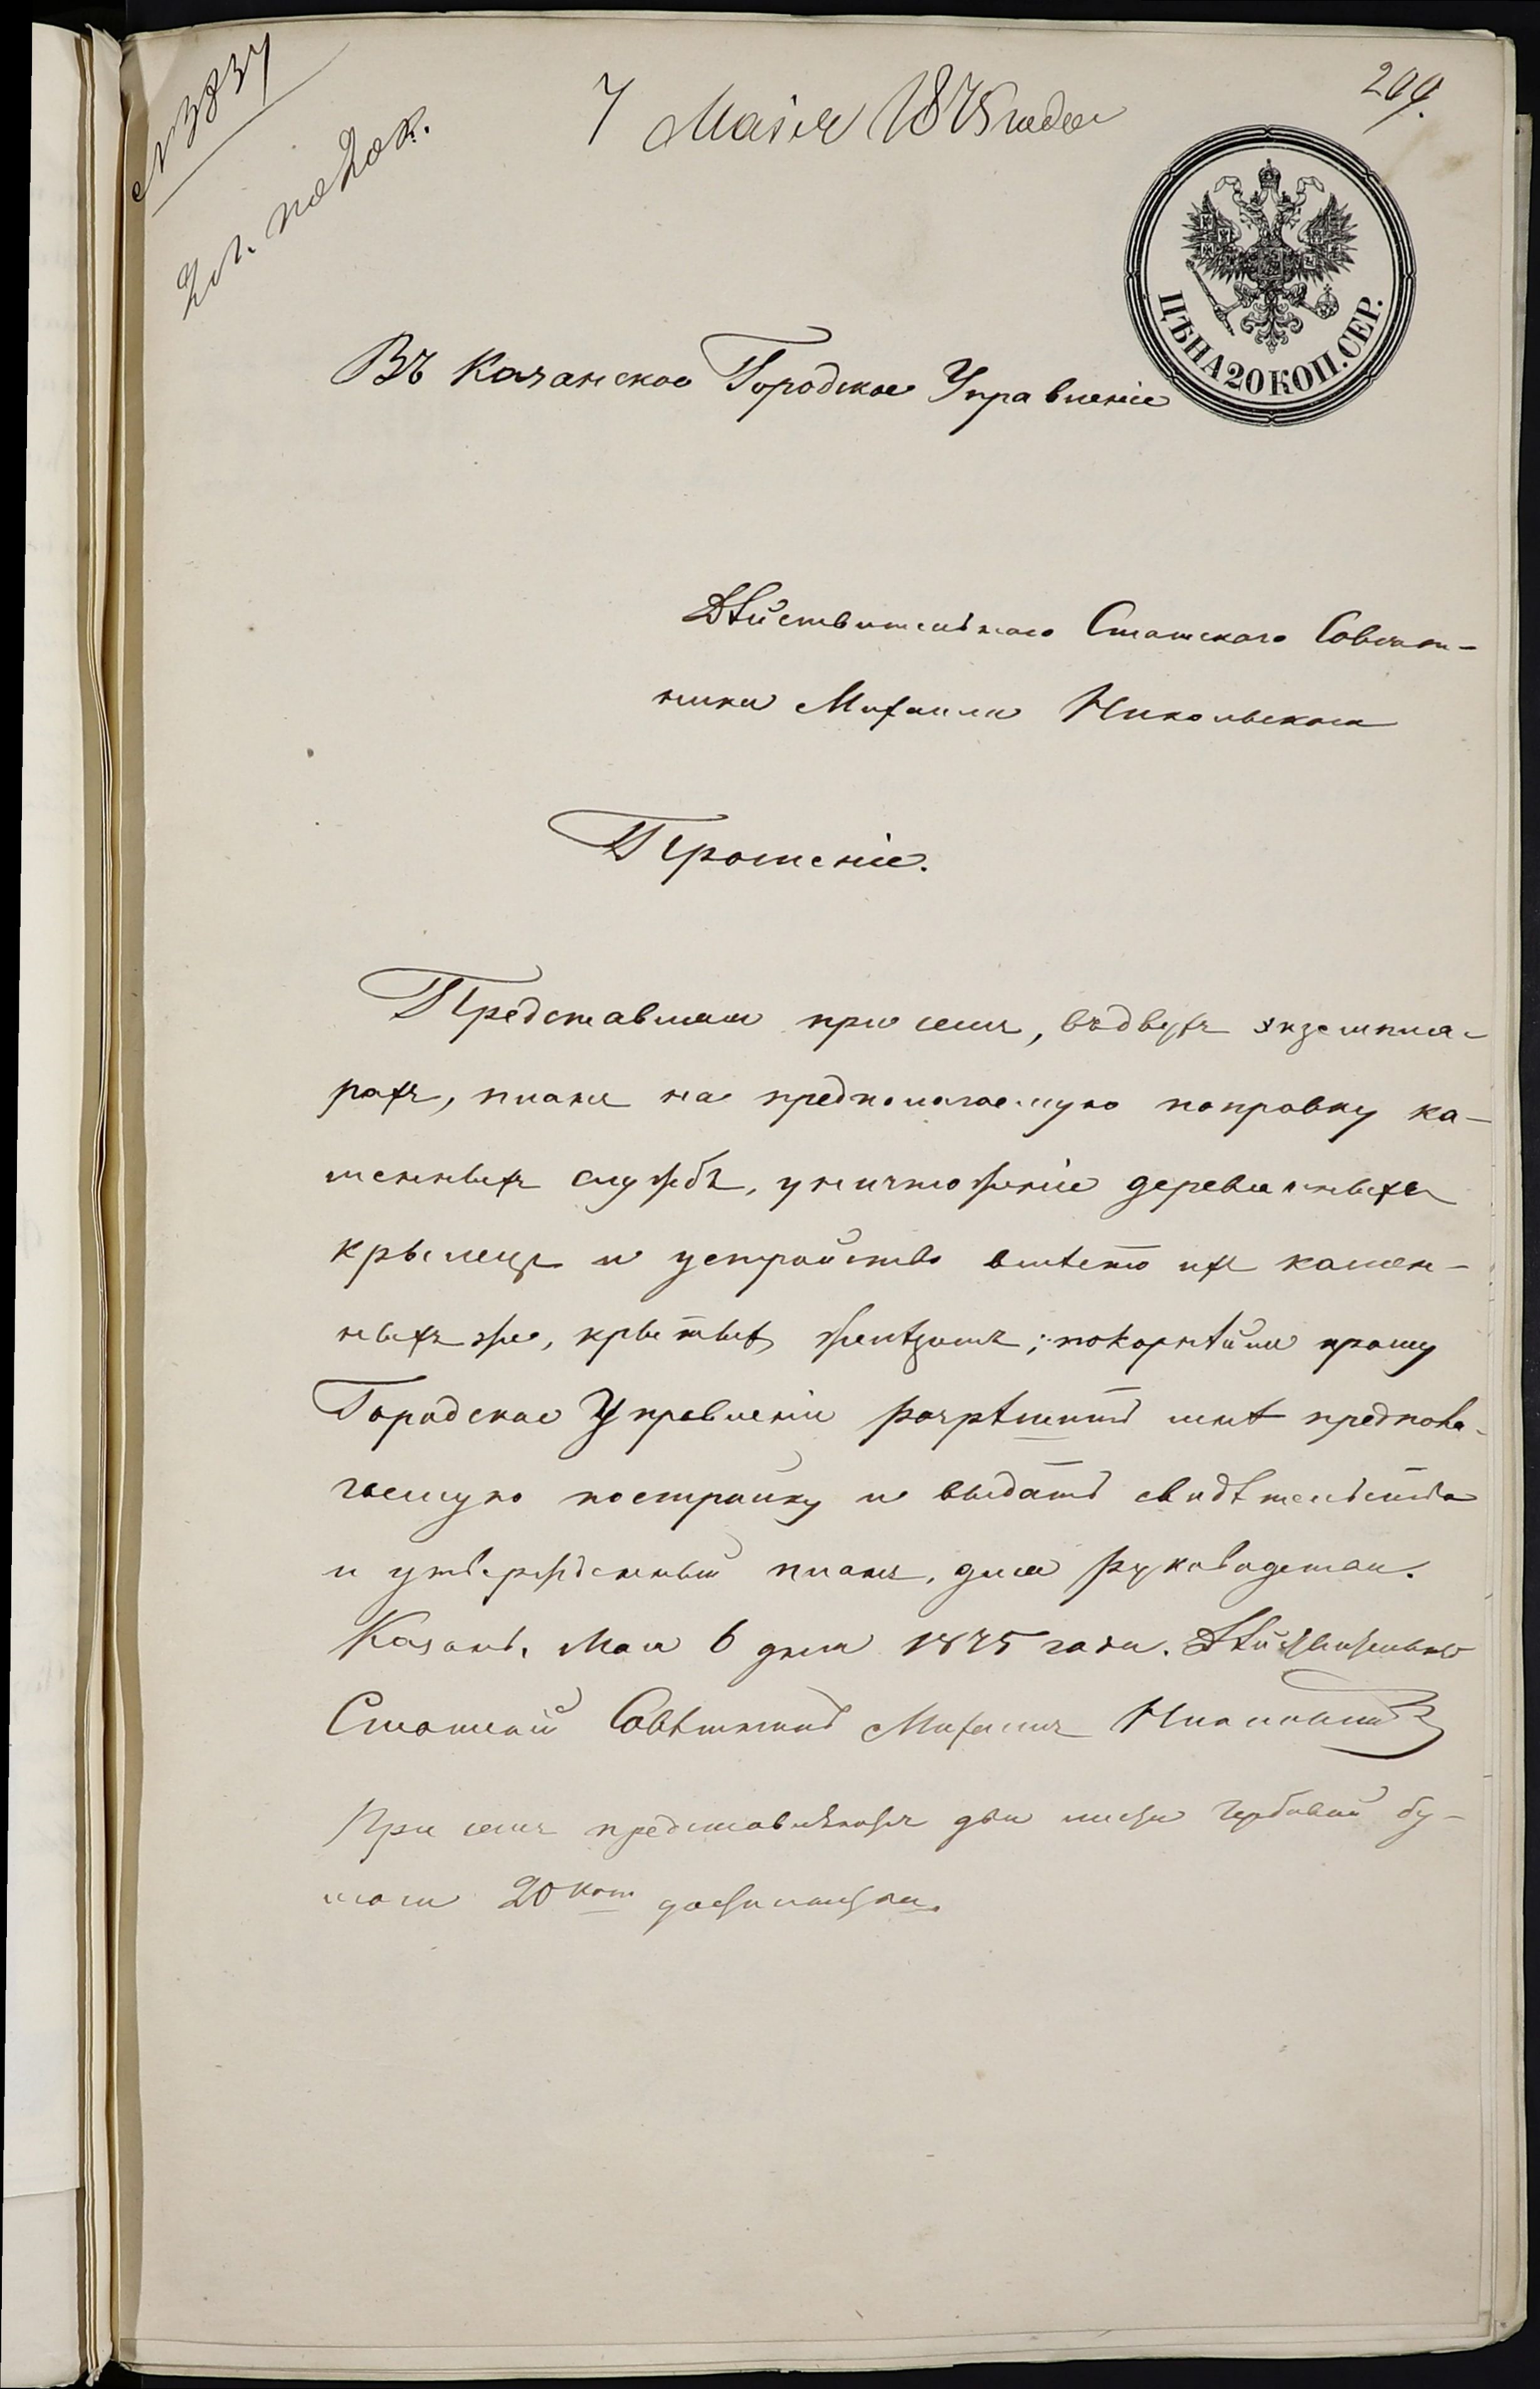 № 3837
2 л. по 20 к.
7 Маія 1875 года
209.
ЦѢНА 20 КОП. СЕР.
Въ Казанское Городское Управленіе
Дѣйствительнаго Статскаго Совѣт-
ника Михаила Никольскаго
Прошеніе.
Представляя при семъ, въ двухъ экземпля-
рахъ, планъ на предполагаемую поправку ка-
менныхъ службъ, уничтоженіе деревянныхъ
крылецъ и устройство вмѣсто ихъ камен-
ныхъ же, крытыхъ желѣзомъ; покорнѣйше прошу
Городское Управленіе разрѣшить мнѣ предпола-
гаемую постройку и выдать свидѣтельство
и утвержденный планъ, для руководства.
Казань, Мая 6 дня 1875 года. Дѣйствительный
Статскій Совѣтникъ Михаилъ Никольскій
При семъ представляются два листа гербовой бу-
маги 20 коп. достоинства.